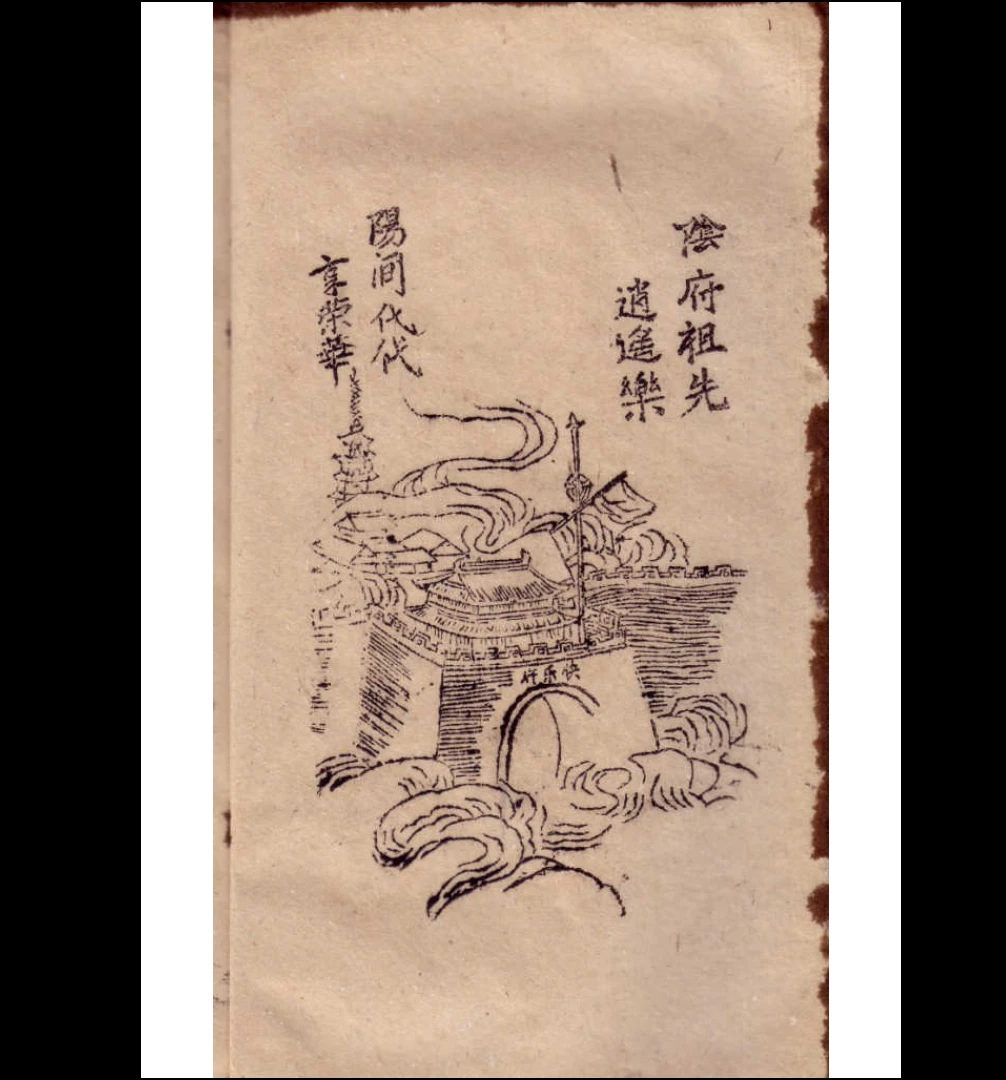 陰府祖先
逍遙樂
陽间代代
享荣華
快乐城